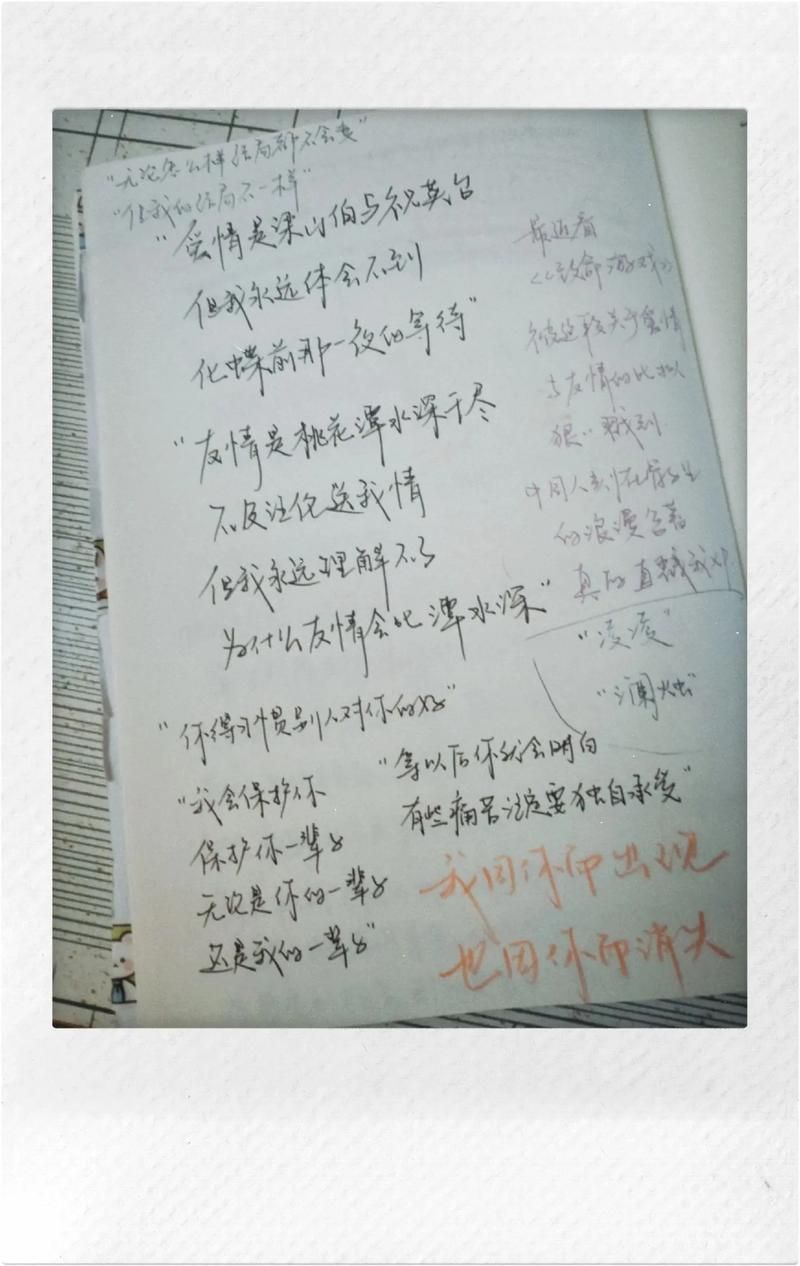 "无论怎么样结局都不会变"
"但我的结局不一样"
"爱情是梁山伯与祝英台
但我永远体会不到
化蝶前那一夜的等待"
"友情是桃花潭水深千尽
不及汪伦送我情
但我永远理解不了
为什么友情会比潭水深"
"你得习惯别人对你的好"
"我会保护你
保护你一辈子
无论是你的一辈子
还是我的一辈子"
"等以后你就会明白
有些痛苦注定要独自承受"
我因你而出现
也因你而消失
最近看
《致命游戏》
被这段关于爱情
与友情的比拟
狠狠戳到
中国人刻在骨子里
的浪漫
真的直戳我
"凌凌"
"澜烛"